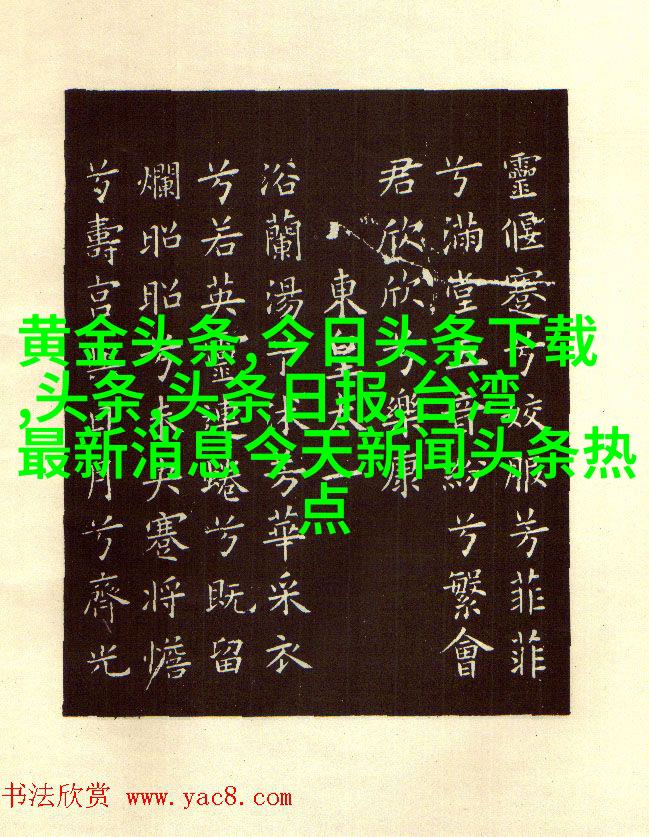 靈偃蹇兮姣服芳菲菲
兮滿堂五音紛兮繁會
君欣欣兮樂康
東皇太一
浴蘭湯兮沐芳華采衣
兮若英靈連蜷兮既留
爛昭昭兮未央蹇將憺
兮壽宮與日月兮齊光
黄金头条,今日头条下载
,头条,头条日报,台湾
最新消息今天新闻头条热
点
书法欣赏 www.yac8.com